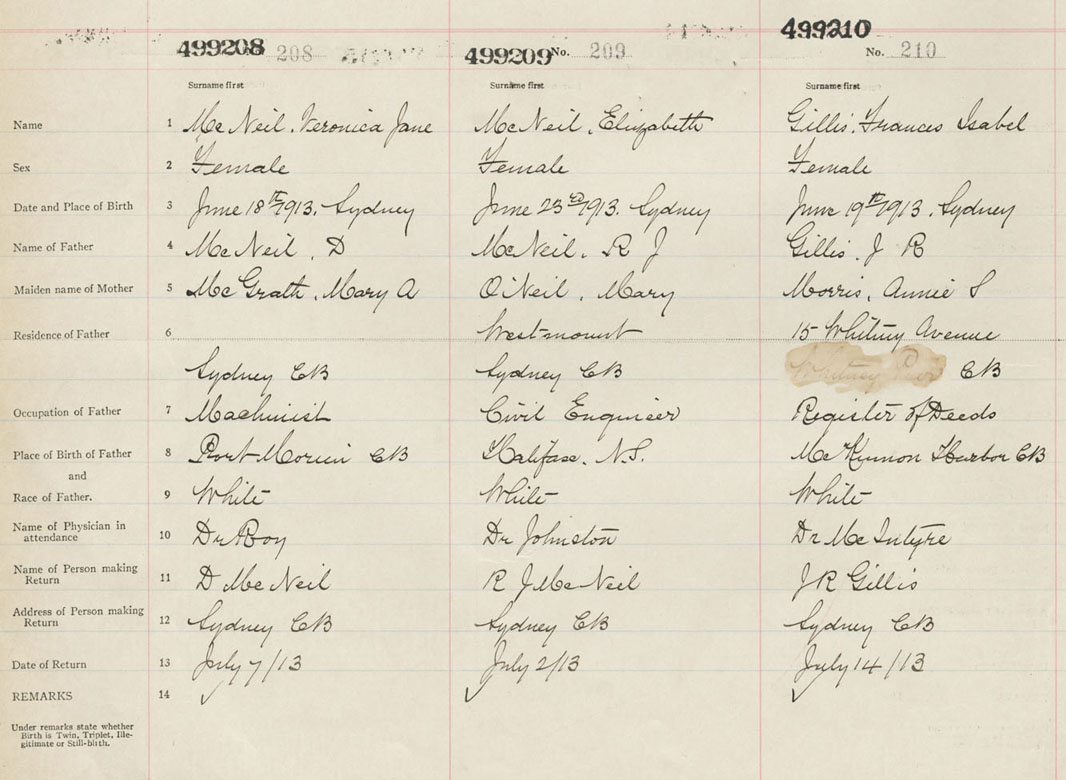 499208 208 499209 No. 209 499210 No. 210
Surname first Surname first Surname first
Name 1 McNeil, Veronica Jane McNeil, Elizabeth Gillis, Frances Isabel
Sex 2 Female Female Female
Date and Place of Birth 3 June 18th 1913. Sydney June 23rd 1913. Sydney June 19th 1913. Sydney
Name of Father 4 McNeil, D McNeil, R J Gillis, J R
Maiden name of Mother 5 McGrath, Mary A O'Neil, Mary Morris, Annie S
Residence of Father 6 Westmount 15 Whitney Avenue
Sydney CB Sydney CB CB
Occupation of Father 7 Machinist Civil Engineer Register of Deeds
Place of Birth of Father 8 Port Morien CB Halifax, N.S. McKinnon Harbor CB
and
Race of Father. 9 White White White
Name of Physician in
attendance 10 Dr Roy Dr Johnston Dr McIntyre
Name of Person making
Return 11 D McNeil R J McNeil J R Gillis
Address of Person making
Return 12 Sydney CB Sydney CB Sydney CB
Date of Return 13 July 7/13 July 2/13 July 14/13
REMARKS 14
Under remarks state whether
Birth is Twin, Triplet, Ille-
gitimate or Still-birth.